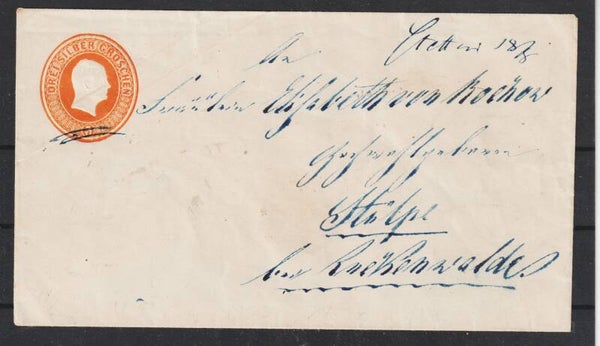 DREI SILBER GROSCHEN
An
Stettin 18/8
Fräulein Elisabeth von Rochow
Hochwohlgeboren
Stülpe
bei Luckenwalde.